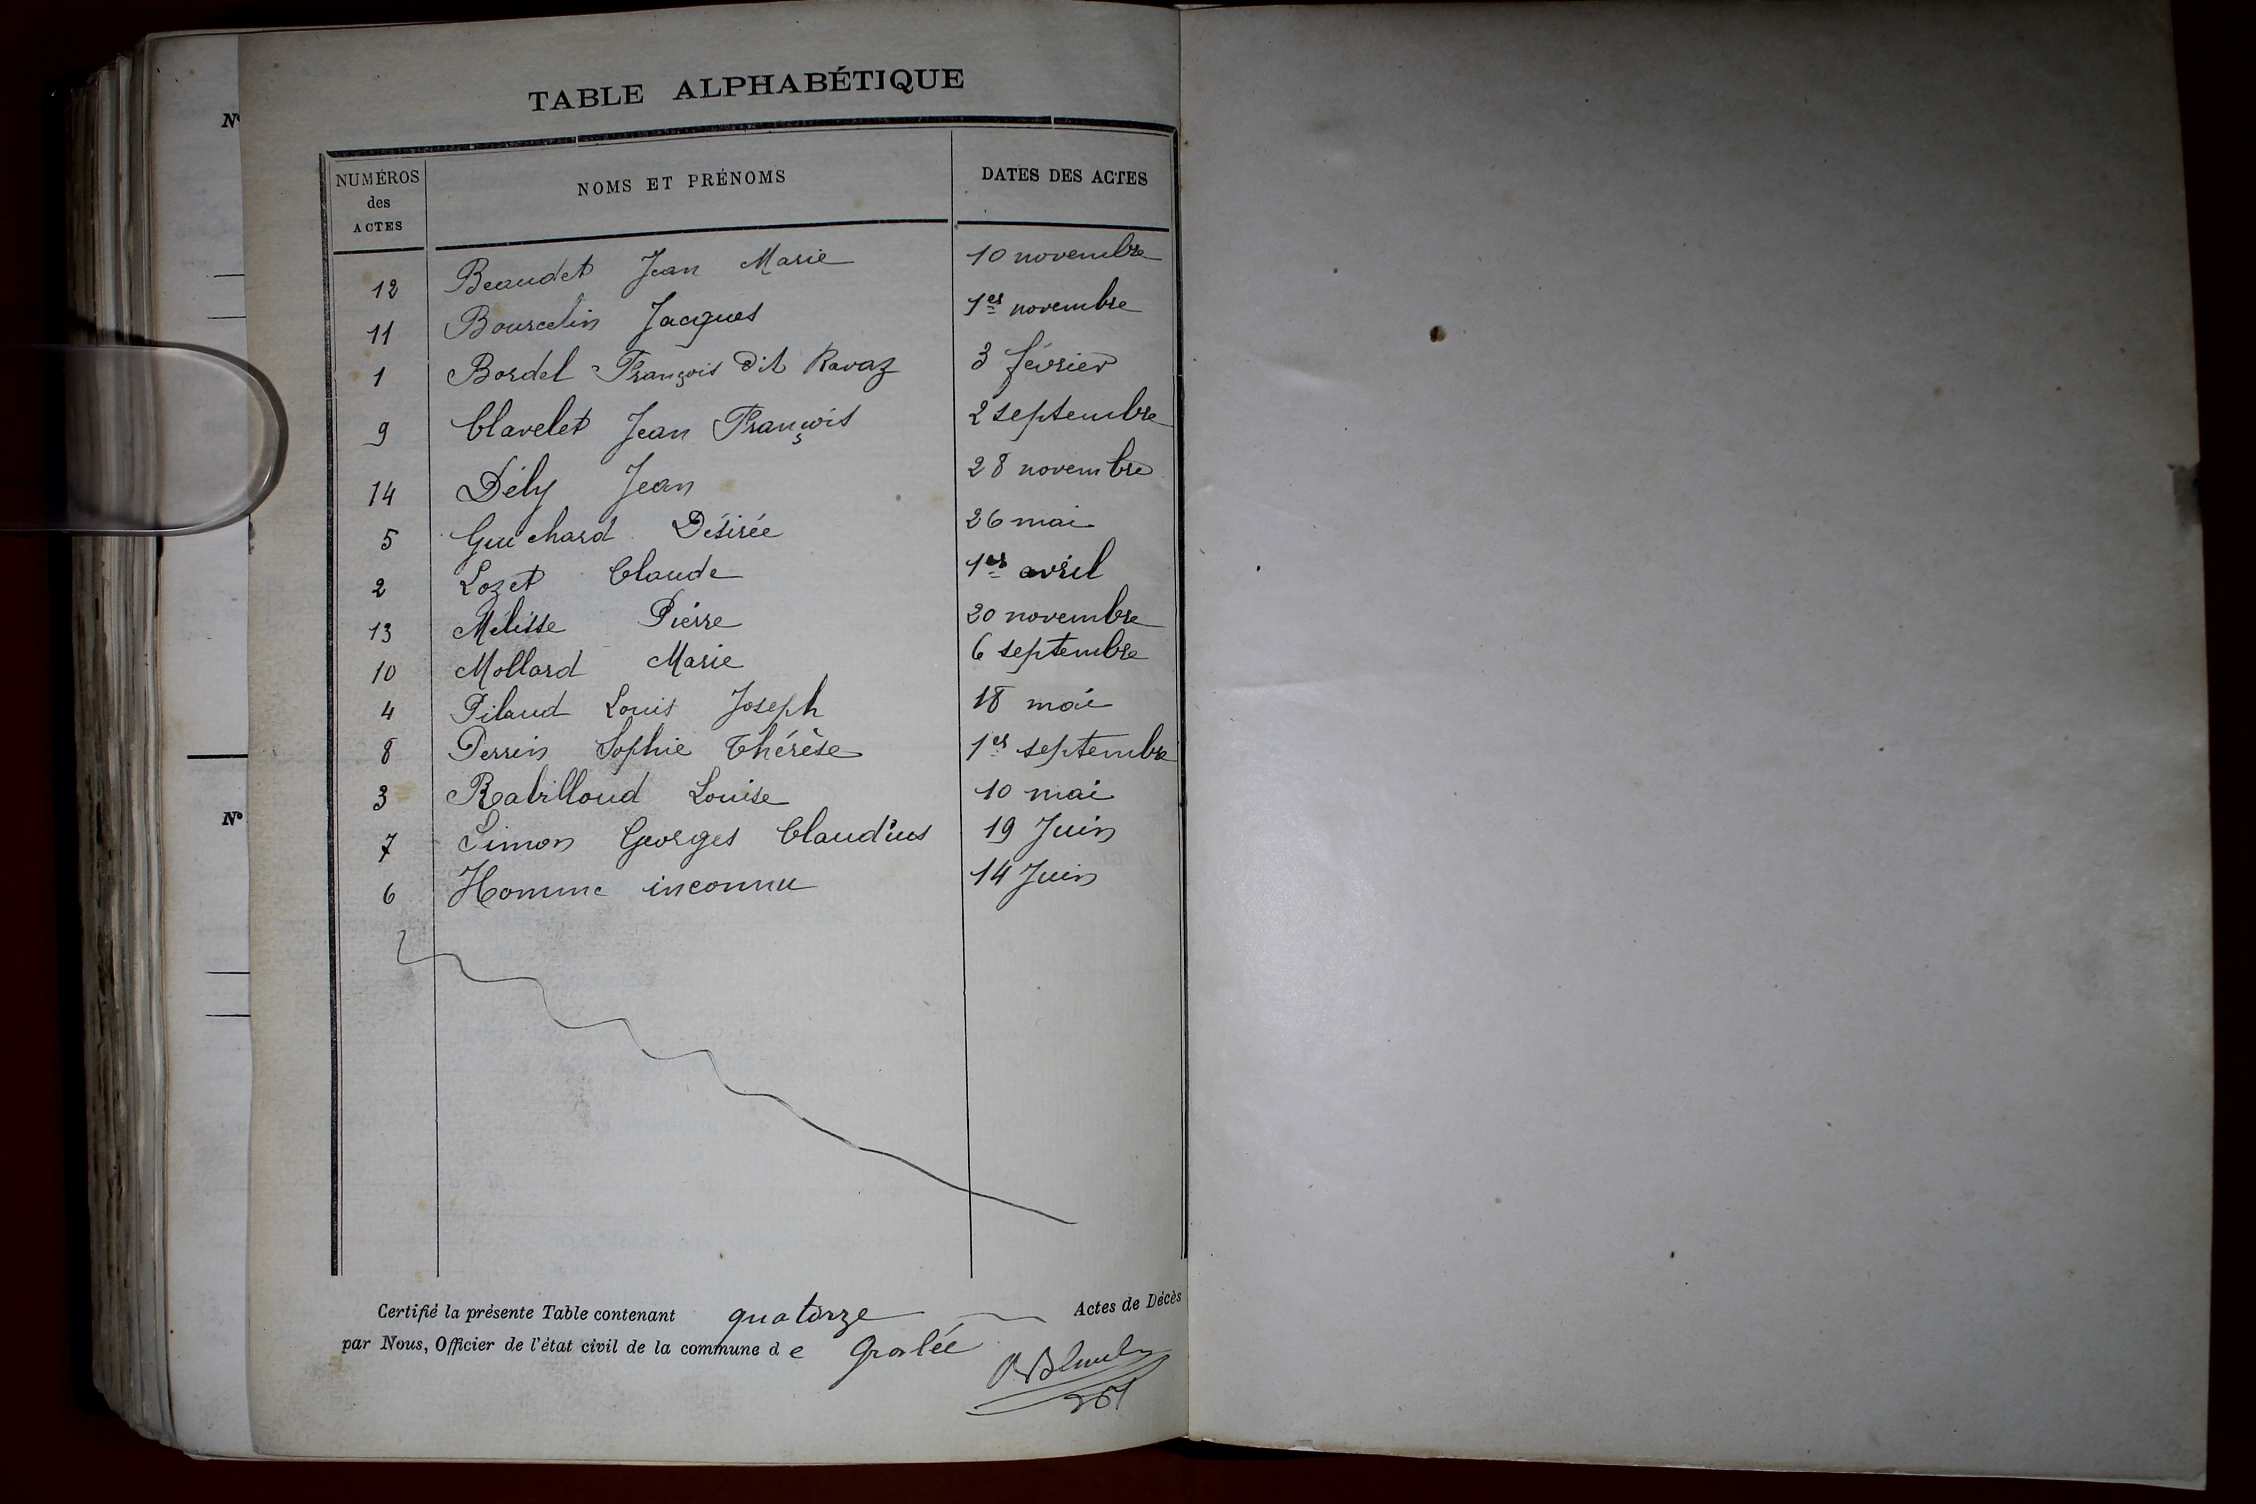 N°
TABLE ALPHABÉTIQUE
NUMÉROS des ACTES
NOMS ET PRÉNOMS
DATES DES ACTES
12 Beaudet Jean Marie 10 novembre
11 Bourcelin Jacques 1er novembre
1 Bordel François dit Ravaz 3 février
9 Clavelet Jean François 2 septembre
14 Dély Jean 28 novembre
5 Guichard Désirée 26 mai
2 Lozet Claude 1er avril
13 Mélisse Pierre 20 novembre
10 Mollard Marie 6 septembre
4 Pilaud Louis Joseph 18 mai
8 Perrin Sophie Thérèse 1er septembre
3 Rabilloud Louise 10 mai
7 Simon Georges Claudius 19 Juin
6 Homme inconnu 14 Juin
N°
Certifié la présente Table contenant quatorze Actes de Décès
par Nous, Officier de l'état civil de la commune de Groslée